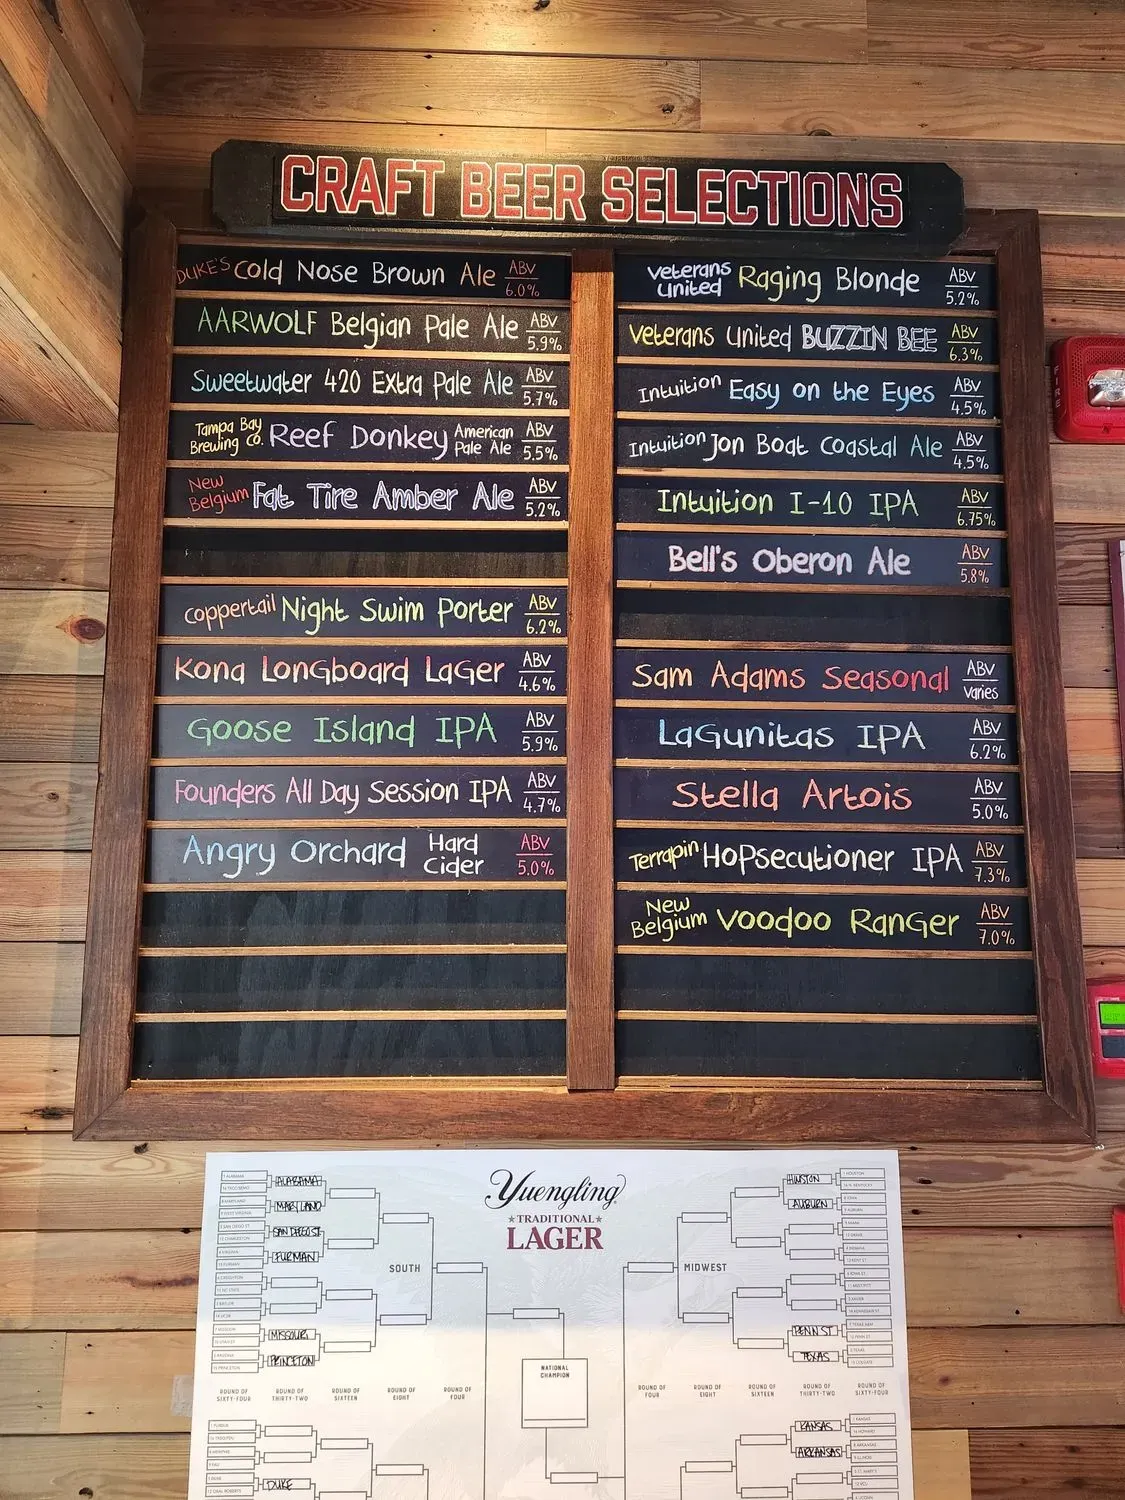 CRAFT BEER SELECTIONS
DUKE'S Cold Nose Brown Ale ABV 6.0%
AARWOLF Belgian Pale Ale ABV 5.9%
Sweetwater 420 Extra Pale Ale ABV 5.7%
Tampa Bay Brewing Co. Reef Donkey American Pale Ale ABV 5.5%
New Belgium Fat Tire Amber Ale ABV 5.2%
Coppertail Night Swim Porter ABV 6.2%
Kona Longboard Lager ABV 4.6%
Goose Island IPA ABV 5.9%
Founders All Day Session IPA ABV 4.7%
Angry Orchard Hard Cider ABV 5.0%
Veterans United Raging Blonde ABV 5.2%
Veterans United BUZZIN BEE ABV 6.3%
Intuition Easy on the Eyes ABV 4.5%
Intuition Jon Boat Coastal Ale ABV 4.5%
Intuition I-10 IPA ABV 6.75%
Bell's Oberon Ale ABV 5.8%
Sam Adams Seasonal ABV Varies
Lagunitas IPA ABV 6.2%
Stella Artois ABV 5.0%
Terrapin Hopsecutioner IPA ABV 7.3%
New Belgium Voodoo Ranger ABV 7.0%
FIRE
Yuengling
TRADITIONAL
LAGER
ALABAMA
MARYLAND
SAN DIEGO ST.
FURMAN
MISSOURI
PRINCETON
SOUTH
HOUSTON
AUBURN
PENN ST
TEXAS
MIDWEST
NATIONAL
CHAMPION
ROUND OF SIXTY-FOUR
ROUND OF THIRTY-TWO
ROUND OF SIXTEEN
ROUND OF EIGHT
ROUND OF FOUR
ROUND OF FOUR
ROUND OF EIGHT
ROUND OF SIXTEEN
ROUND OF THIRTY-TWO
ROUND OF SIXTY-FOUR
DUKE
KANSAS
ARKANSAS